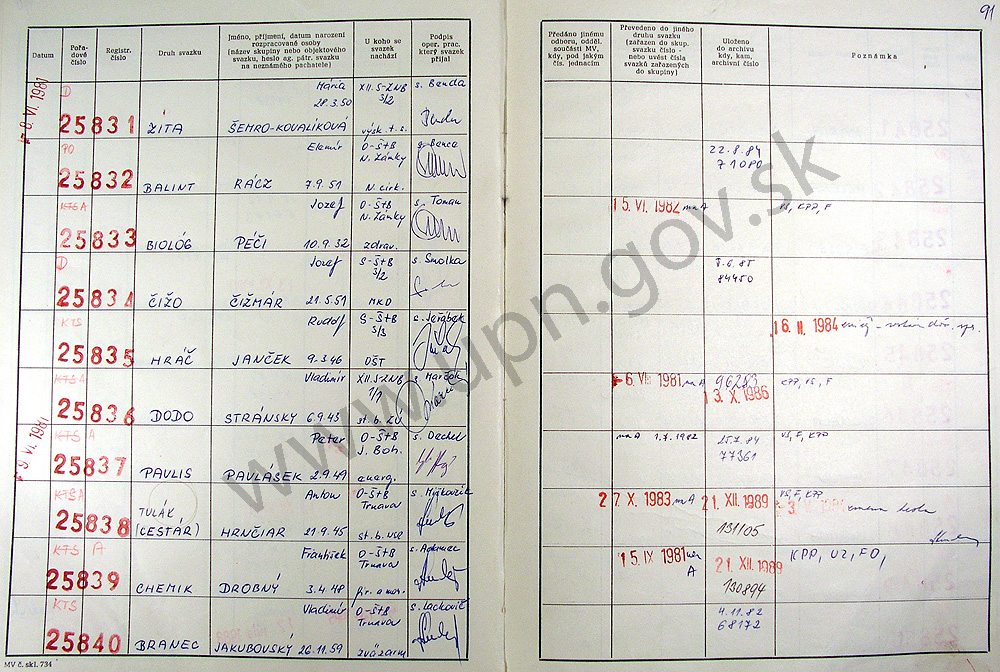 91
Datum
Pořadové číslo
Registr. číslo
Druh svazku
Jméno, příjmení, datum narození rozpracované osoby (název skupiny nebo objektového svazku, heslo ag. pátr. svazku na neznámého pachatele)
U koho se svazek nachází
Podpis oper. prac. který svazek přijal
Předáno jinému odboru, odděl. součásti MV, kdy, pod jakým čís. jednacím
Převedeno do jiného druhu svazku (zařazen do skup. svazku číslo - nebo uvést čísla svazků zařazených do skupiny)
Uloženo do archivu kdy, kam, archivní číslo
Poznámka
VI. 1981
D
25831
ŽITA
Mária
28.3.50
ŠEMRO-KOVALÍKOVÁ
XII. S-ZNB
3/2
výsk. t. s.
s. Benda
PO
25832
BALINT
Elemír
RÁCZ 7.9.51
O-ŠtB
N. Zámky
N. cirk.
22.8.84
71080
KTS A
25833
BIOLÓG
Jozef
PÉČI 10.9.32
O-ŠtB
N. Zámky
zdrav.
s. Toman
15. VI. 1982 A
VS, KPP, F
D
25834
ČIŽO
Jozef
ČIŽMÁR 21.5.51
S-ŠtB
3/2
MKD
s. Smolka
84450
KTS
25835
HRÁČ
Rudolf
JANČEK 9.3.46
S-ŠtB
3/3
OŠT
s. Jeřábek
16. II. 1984
KTS A
25836
DODO
Vladimír
STRÁNSKY 6.9.43
XII. S-ZNB
1/1
st. b. ZÚ
s. Marček
1981 A
96283
13. X. 1986
KPP, VS, F
VI. 1981
KTS A
25837
PAVLIS
Peter
PAVLÁSEK 2.9.49
O-ŠtB
J. Boh.
energ.
s. Dechel
A 1.7.1982
25.7.84
77361
VS, F, KPP
KTS A
25838
TULÁK
(CESTÁR)
Anton
HRNČIAR 21.9.45
O-ŠtB
Trnava
27. X. 1983 A
21. XII. 1989
131105
VS, F, KPP
KTS A
25839
CHEMIK
František
DROBNÝ 3.4.48
O-ŠtB
Trnava
s. Adamec
15. IX 1981
A
21. XII. 1989
130894
KPP, UZ, FO,
KTS
25840
BRANEC
Vladimír
JAKUBOVSKÝ 26.11.59
O-ŠtB
Trnava
s. Lackovič
4.11.82
68172
MV č. skl. 734
www.upn.gov.sk